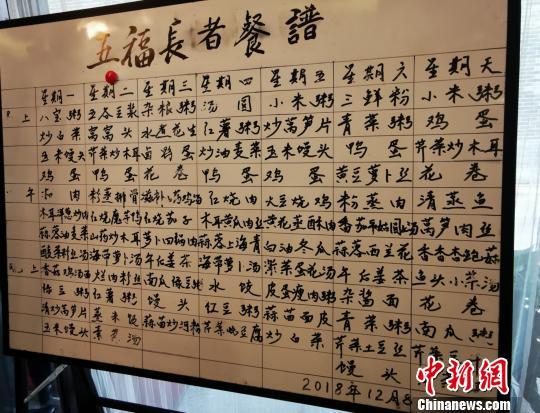 五福長者餐譜
星期一 星期二 星期三 星期四 星期五 星期六 星期天
上 八宝粥 五谷豆浆 杂粮粥 汤圆 小米粥 三鲜粉 小米粥
炒白菜 窝窝头 水煮花生 红薯粥 炒莴笋片 青菜粥 鸡蛋
玉米馒头 芹菜炒木耳 卤鸡蛋 炒油麦菜 玉米馒头 鸭蛋 芹菜炒木耳
鸡蛋 鸭蛋 花卷 鸭蛋 鸡蛋 黄豆萝卜丝 花卷
午 肉 粉蒸排骨 红烧肉 大豆烧鸡 粉蒸肉 清蒸鱼
木耳 红烧 茄子 木耳黄瓜肉丝 黄花菜酥肉 番茄 莴笋肉丝
蒜蓉油麦菜 山药炒木耳 萝卜 蒜蓉上海青 白油冬瓜 蒜蓉西兰花 香香杏鲍菇
酸菜粉丝汤 海带萝卜汤 午后姜茶 海带萝卜汤 紫菜蛋花汤 午后姜茶 鱼头小菜汤
上 香菇鸡汤面 肉粉丝 南瓜绿豆粥 水饺 皮蛋瘦肉粥 杂酱面 花卷
绿豆粥 红薯粥 馒头 红豆粥 蒜苗面皮 青菜粥 南瓜粥
清炒莴笋片 蒸水饺 蒜苗炒河粉 芹菜 豆腐 炒白菜 芹菜土豆丝 芹菜
玉米馒头 汤 馒头
2018年12月8
中新网
www.chinanews.com